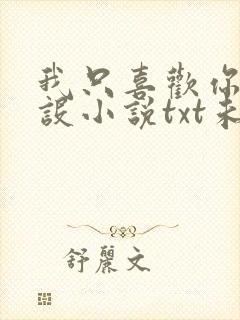 我只喜歡你
設小說txt未
舒麗文